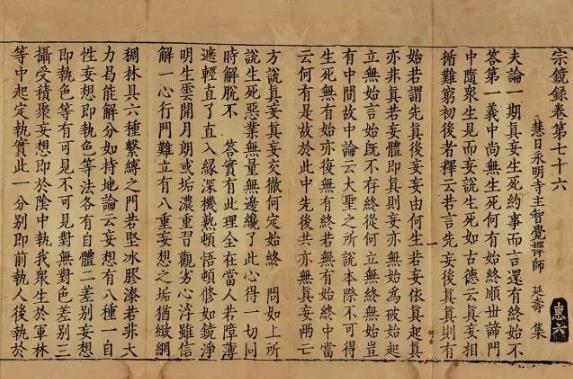 宗鏡錄卷第七十六
慧日永明寺主智覺禪師 延壽 集
惠六
夫論一期真妄生死約事而言還有終始不
答第一義中尚無生死何有始終順世諦門
中隨眾生見而妄說生死如古德云真妄相
循難窮初後者釋云若言先妄後真真則有
始若謂先真後妄妄由何生若妄依真起真
亦非真若妄體即真則妄亦無始為破始起
立無始言始既不存終從何立無終無始豈
有中間故中論云大聖之所說本際不可得
生死無有始亦復無有終若無有始終中當
云何有是故於此中先後共亦無真妄兩亡
方說真妄真妄交徹何定始終 問如上所
說生死惡業無量無邊纔了此心得一切同
時解脫不 答實有此理全在當人若障薄
遮輕直了直入緣深機熟頓悟頓修如鏡淨
明生雲開月朗或垢濃重習觀劣心浮雖信
解一心行門難立有八重妄想之垢猶緻網
稠林具六種繫縛之門若堅冰膠漆若非大
力曷能解分如持地論云妄想有八種一自
性妄想即執色等法各有自體二差別妄想
即執色等有可見不可見對無對色差別三
攝受積聚妄想即於陰中執我眾生於軍林
等中起定執實此一分別即前執人後執於